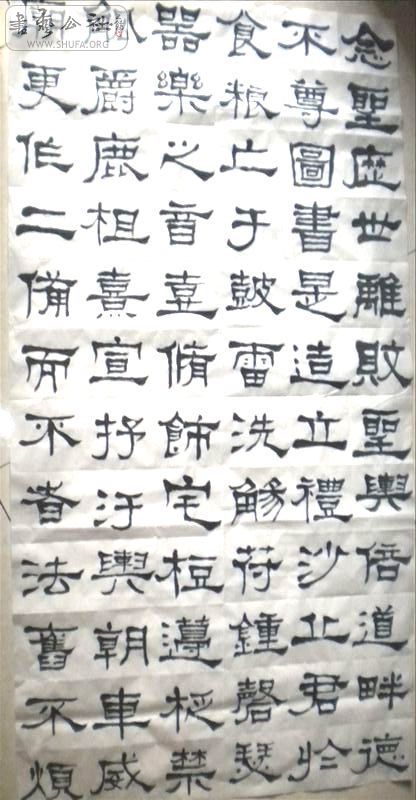 書藝公社
WWW.SHUFA.ORG
念聖歷世離敗聖輿倍道畔德
不尊圖書是造立禮沙丘君於
食糧亡于鼓雷洗觴苻鍾磬瑟
器樂之音壺脩飾宅梪籩柉禁
爵鹿柤熹宣抒汙輿朝車威
更作二備而不奢法舊不煩